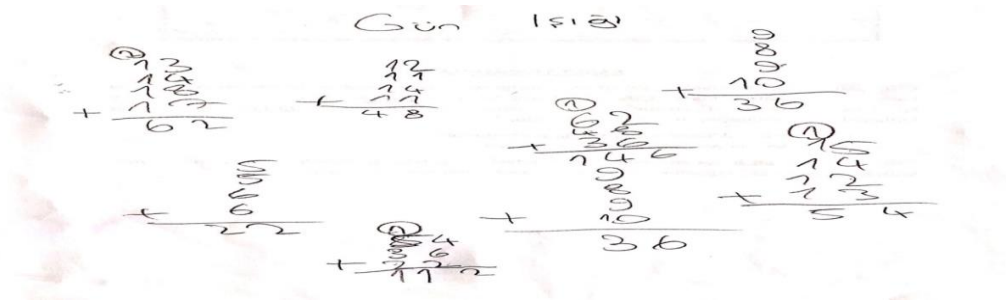 Gün Işığı
② 13
14
18
+ 17
62
12
11
14
+ 11
48
9
8
9
+ 10
36
① 62
48
+ 36
146
① 15
14
12
+ 13
54
5
5
6
+ 6
22
① 54
36
+ 22
112
9
8
9
+ 10
36